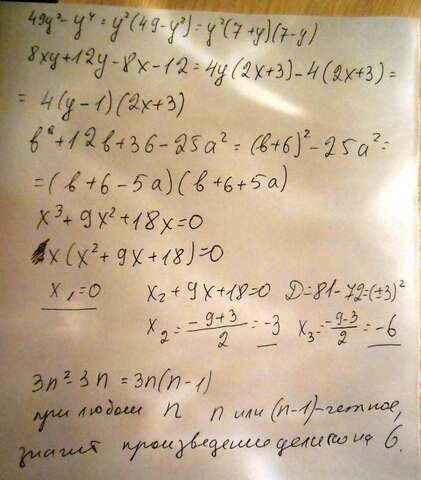 49y² - y⁴ = y²(49 - y²) = y²(7 + y)(7 - y)
8xy + 12y - 8x - 12 = 4y(2x + 3) - 4(2x + 3) =
= 4(y - 1)(2x + 3)
b² + 12b + 36 - 25a² = (b + 6)² - 25a² =
= (b + 6 - 5a)(b + 6 + 5a)
x³ + 9x² + 18x = 0
x(x² + 9x + 18) = 0
x₁ = 0 x₂ + 9x + 18 = 0 D = 81 - 72 = (±3)²
x₂ = (-9 + 3)/2 = -3 x₃ = (-9 - 3)/2 = -6
3n² - 3n = 3n(n - 1)
при любом n n или (n - 1) - четное,
значит произведение делится на 6.